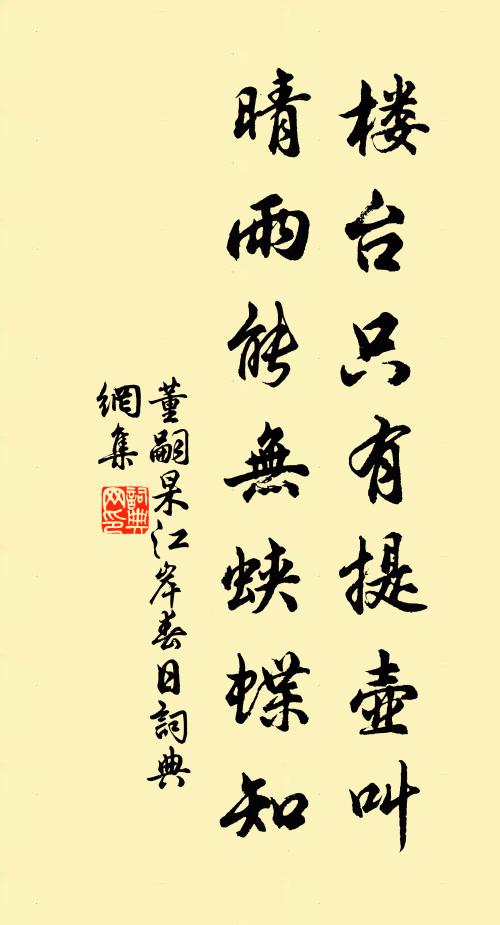 楼台只有提壺叫
晴雨能無蛱蝶知
董嗣杲江岸春日詞典
網集
詞典网印